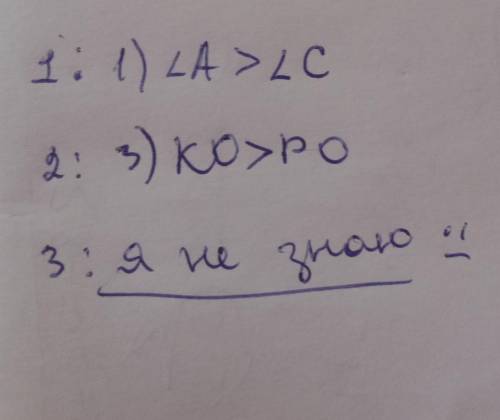 1: 1) ∠A > ∠C
2: 3) KO > PO
3: я не знаю